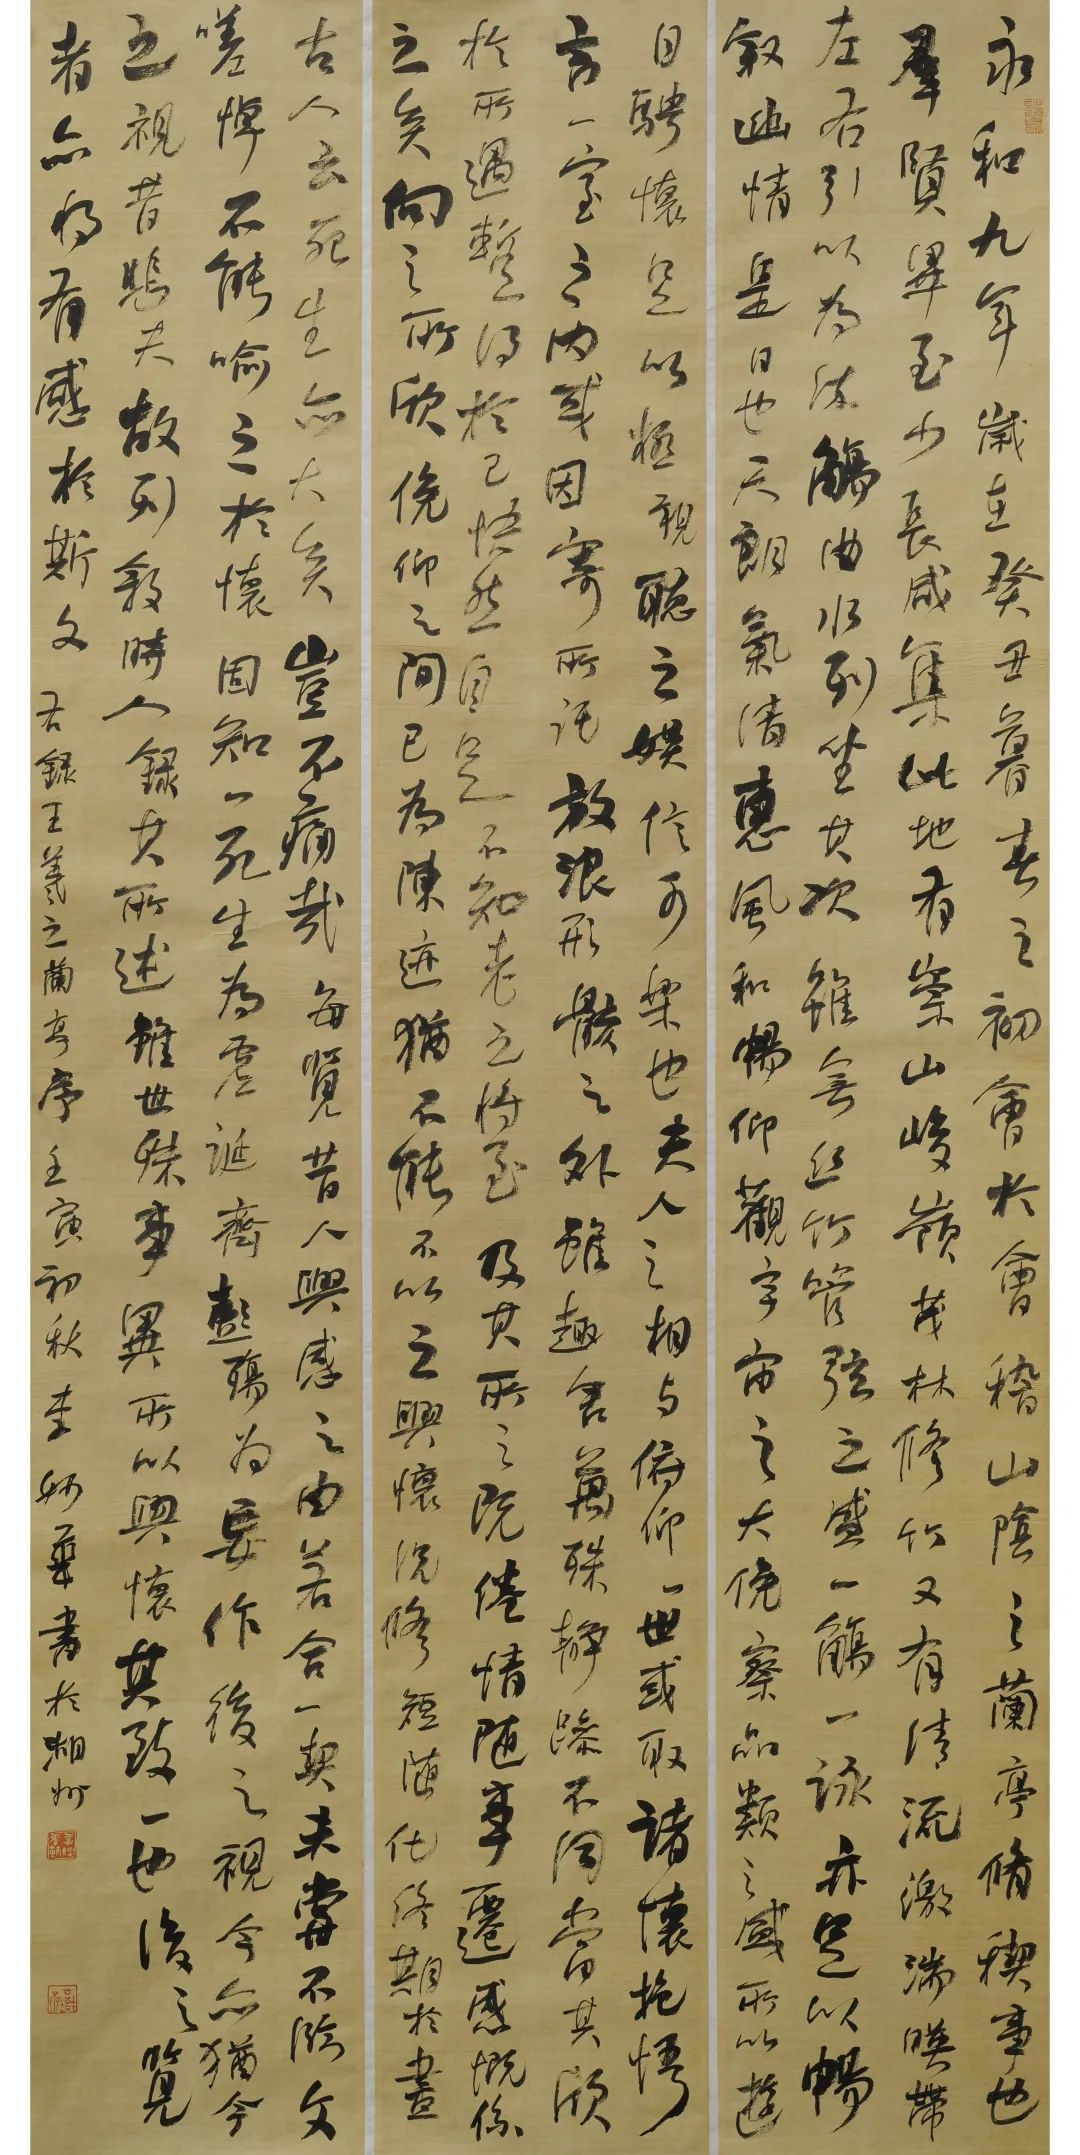 永和九年歲在癸丑暮春之初會於會稽山陰之蘭亭脩稧事也
羣賢畢至少長咸集此地有崇山峻嶺茂林修竹又有清流激湍暎帶
左右引以為流觴曲水列坐其次雖無絲竹管弦之盛一觴一詠亦足以暢
敘幽情是日也天朗氣清惠風和暢仰觀宇宙之大俛察品類之盛所以遊
目騁懷足以極視聽之娛信可樂也夫人之相與俯仰一世或取諸懷抱悟
言一室之內或因寄所託放浪形骸之外雖趣舍萬殊靜躁不同當其欣
於所遇暫得於己快然自足不知老之將至及其所之既倦情隨事遷感慨係
之矣向之所欣俛仰之間已為陳迹猶不能不以之興懷況修短隨化終期於盡
古人云死生亦大矣豈不痛哉每覽昔人興感之由若合一契未嘗不臨文
嗟悼不能喻之於懷固知一死生為虛誕齊彭殤為妄作後之視今亦猶今
之視昔悲夫故列敘時人錄其所述雖世殊事異所以興懷其致一也後之覽
者亦將有感於斯文 右錄王羲之蘭亭序壬寅初秋李華書於州